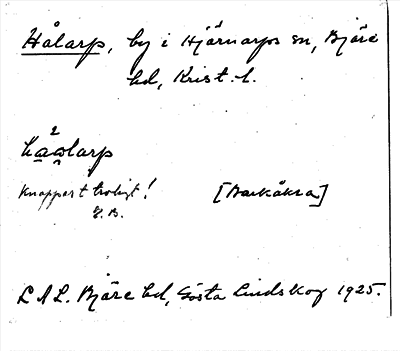 Hålarp, by i Hjärnarps sn, Bjäre
hd, Krist. l.
Knappast troligt!
[Barkåkra]
E. B.
LAL. Bjäre hd, Gösta Lindskog 1925.